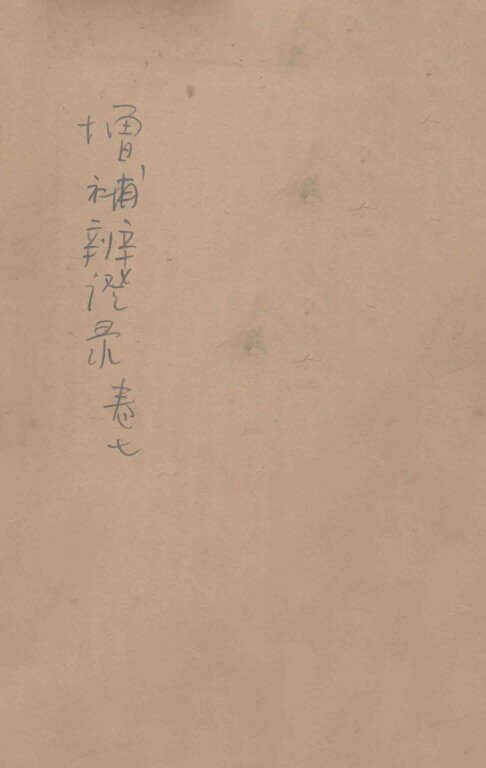 增補辨證录 卷七